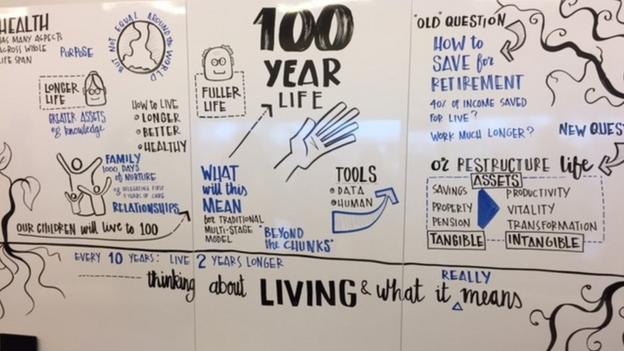 HEALTH
HAS MANY ASPECTS
ACROSS WHOLE
LIFE SPAN
PURPOSE
BUT NOT EQUAL AROUND THE WORLD
LONGER
LIFE
GREATER ASSETS
of knowledge
HOW TO LIVE
LONGER
BETTER
HEALTHY
FAMILY
1000 DAYS
OF NURTURE
RELATIONSHIPS
OUR CHILDREN will LIVE to 100
FULLER
LIFE
100
YEAR
LIFE
WHAT
will this
MEAN
for TRADITIONAL
MULTI-STAGE
MODEL
"BEYOND
the CHUNKS"
TOOLS
DATA
HUMAN
"OLD" QUESTION
HOW to
SAVE for
RETIREMENT
40% OF INCOME SAVED
FOR LIVE?
WORK MUCH LONGER?
NEW QUEST
or RESTRUCTURE life
ASSETS
SAVINGS
PROPERTY
PENSION
TANGIBLE
PRODUCTIVITY
VITALITY
TRANSFORMATION
INTANGIBLE
EVERY 10 YEARS: LIVE 2 YEARS LONGER
thinking about LIVING & what it REALLY means